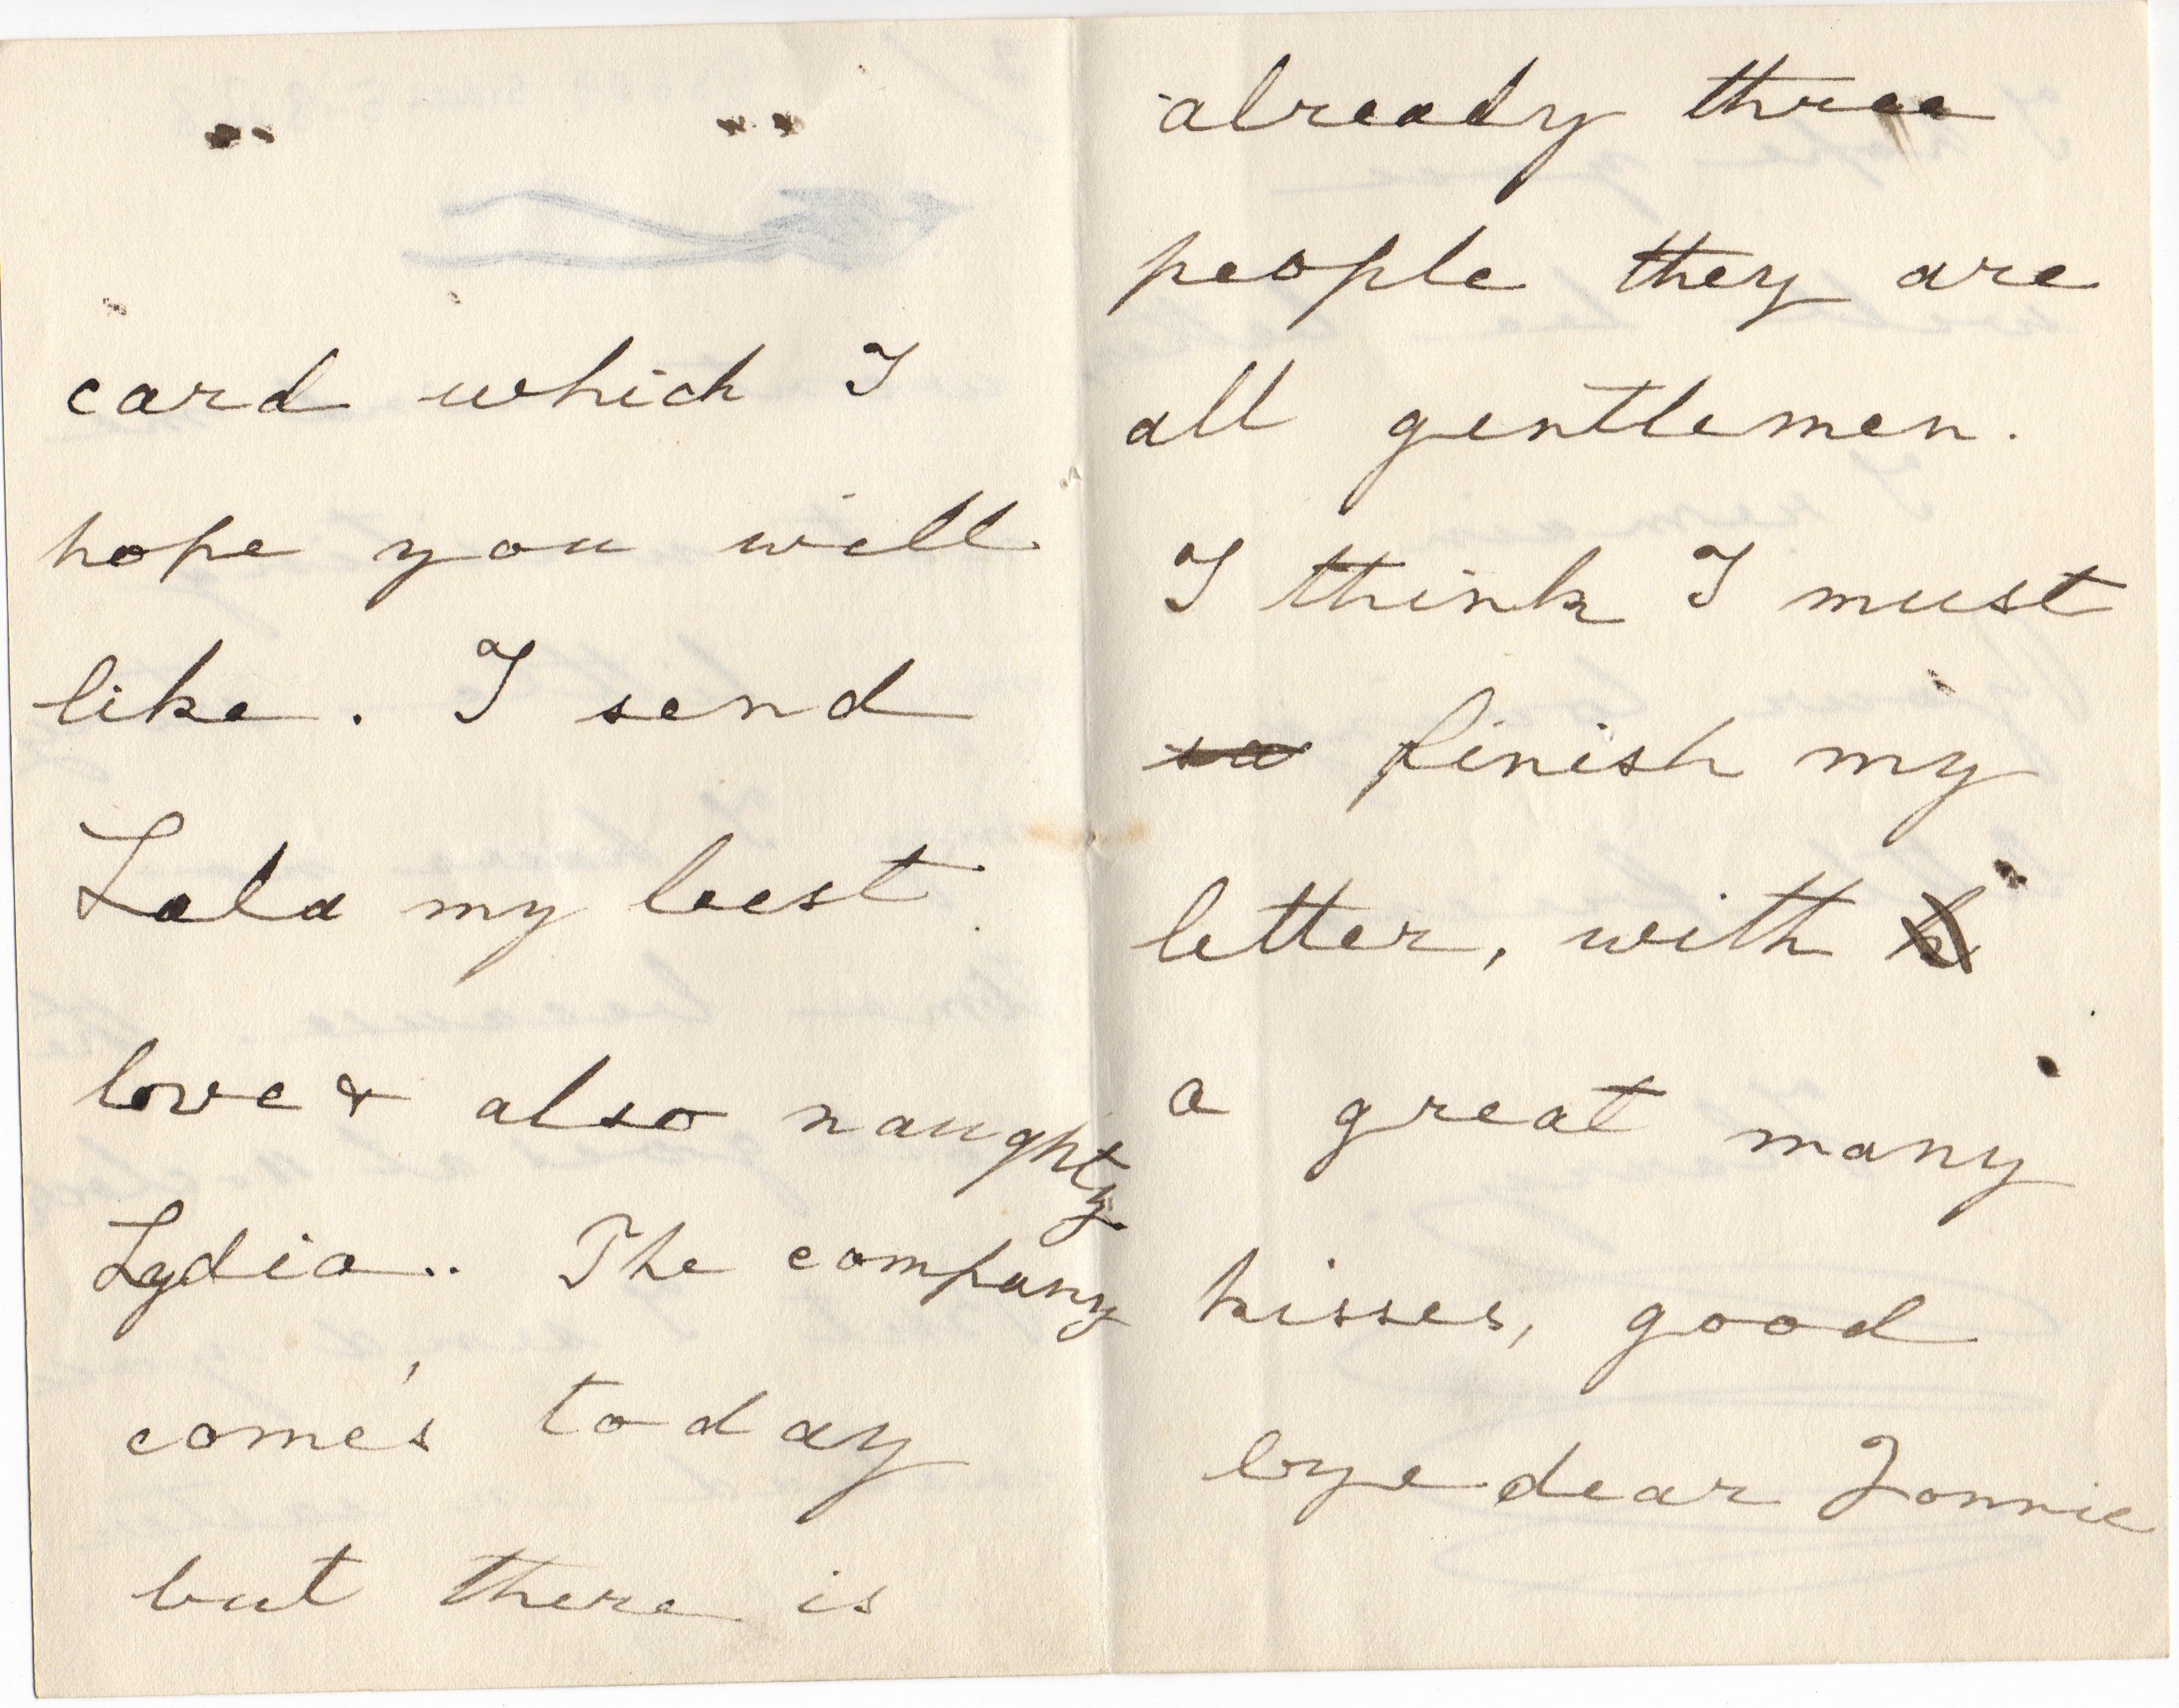 card which I
hope you will
like. I send
Lala my best
love & also naughty
Lydia.. The company
come's today
but there is
already three
people they are
all gentlemen.
I think I must
finish my
letter, with
a great many
kisses, good
bye dear Fonnie